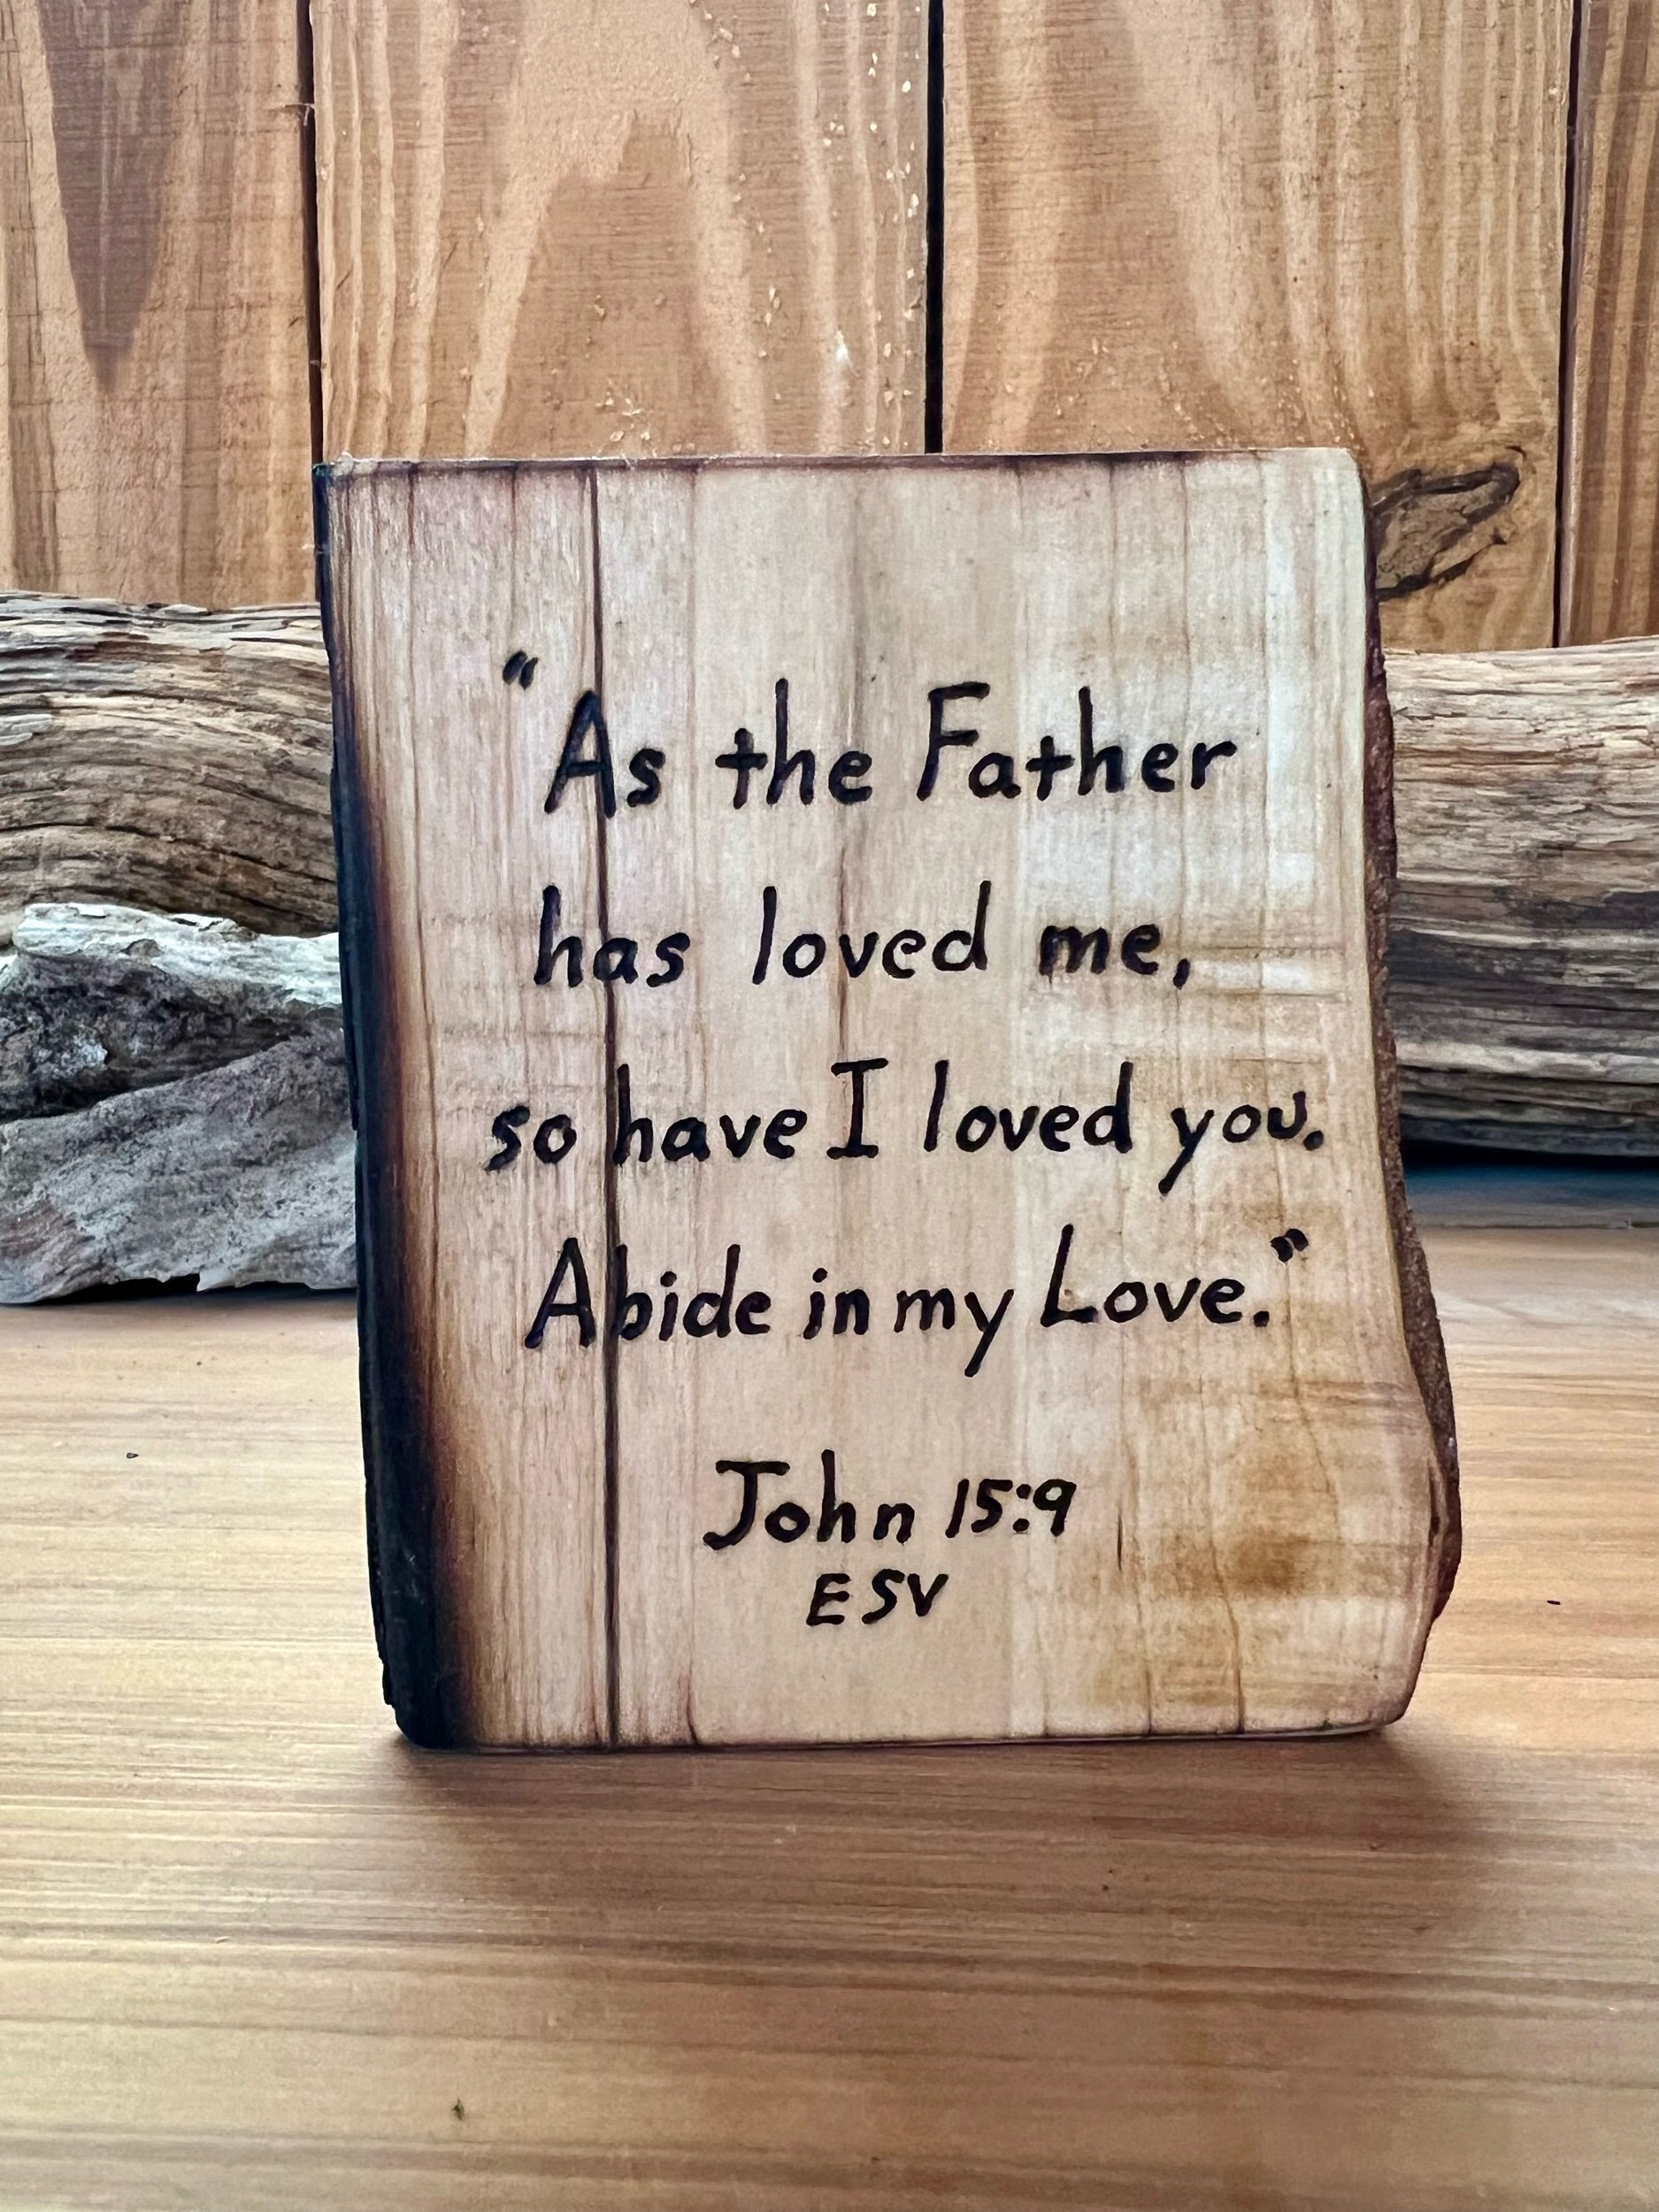 "As the Father
has loved me,
so have I loved you.
Abide in my Love."
John 15:9
ESV